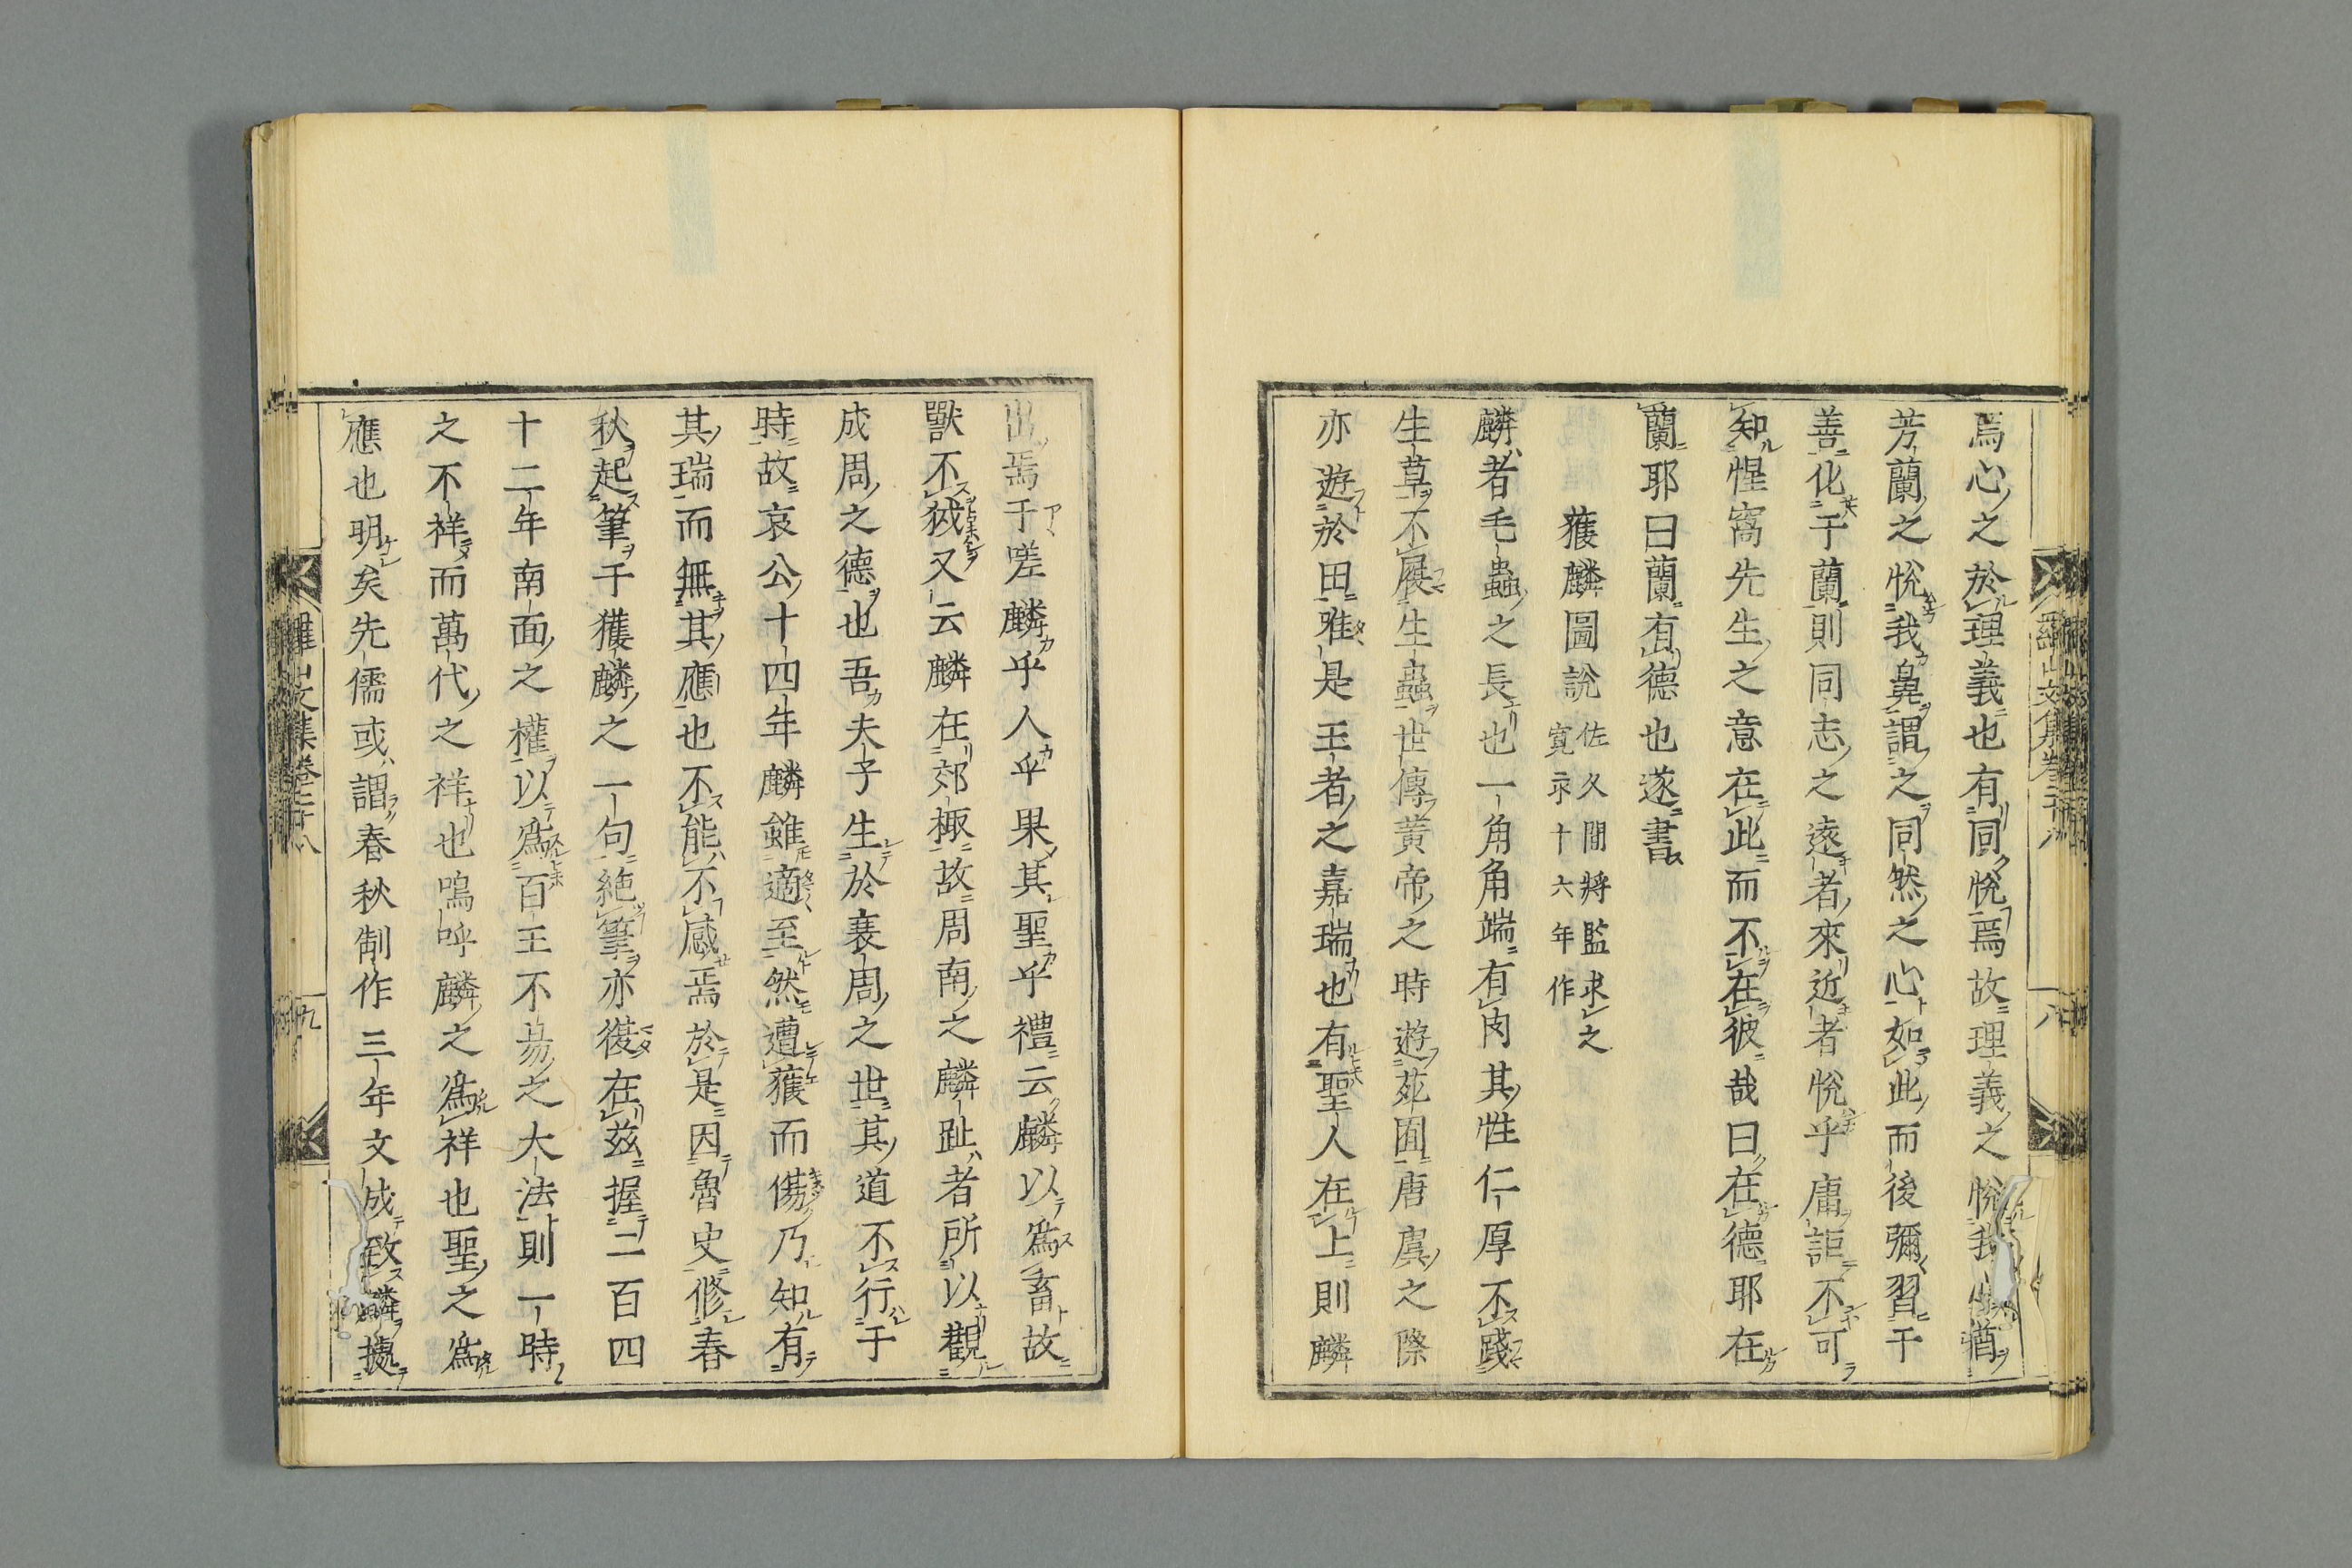 焉心之於理義也有同悅焉故理義之悅我心猶
芳蘭之悅我鼻謂之同然之心如此而後彌習于
善化于蘭則同志之遠者來近者悅乎庸詎不可
知惺窩先生之意在此而不在彼哉曰在德耶在
蘭耶曰蘭有德也遂書
獲麟圖說
佐久間將監求之
寛永十六年作
麟者毛蟲之長也一角角端有肉其性仁厚不踐
生草不履生蟲世傳黃帝之時遊苑囿唐虞之際
亦遊於田雖是王者之嘉瑞也有聖人在上則麟
羅山文集卷二十八
八
出焉于嗟麟乎人乎果其聖乎禮云麟以爲畜故
獸不狘又云麟在郊棷故周南之麟趾者所以觀
成周之德也吾夫子生於衰周之世其道不行于
時故哀公十四年麟雖適至然遭獲而傷乃知有
其瑞而無其應也不能不感焉於是因魯史修春
秋起筆于獲麟之一句絕筆亦復在茲握二百四
十二年南面之權以爲百王不易之大法則一時
之不祥而萬代之祥也嗚呼麟之爲祥也聖之爲
應也明矣先儒或謂春秋制作三年文成致麟據
羅山文集卷二十八
九